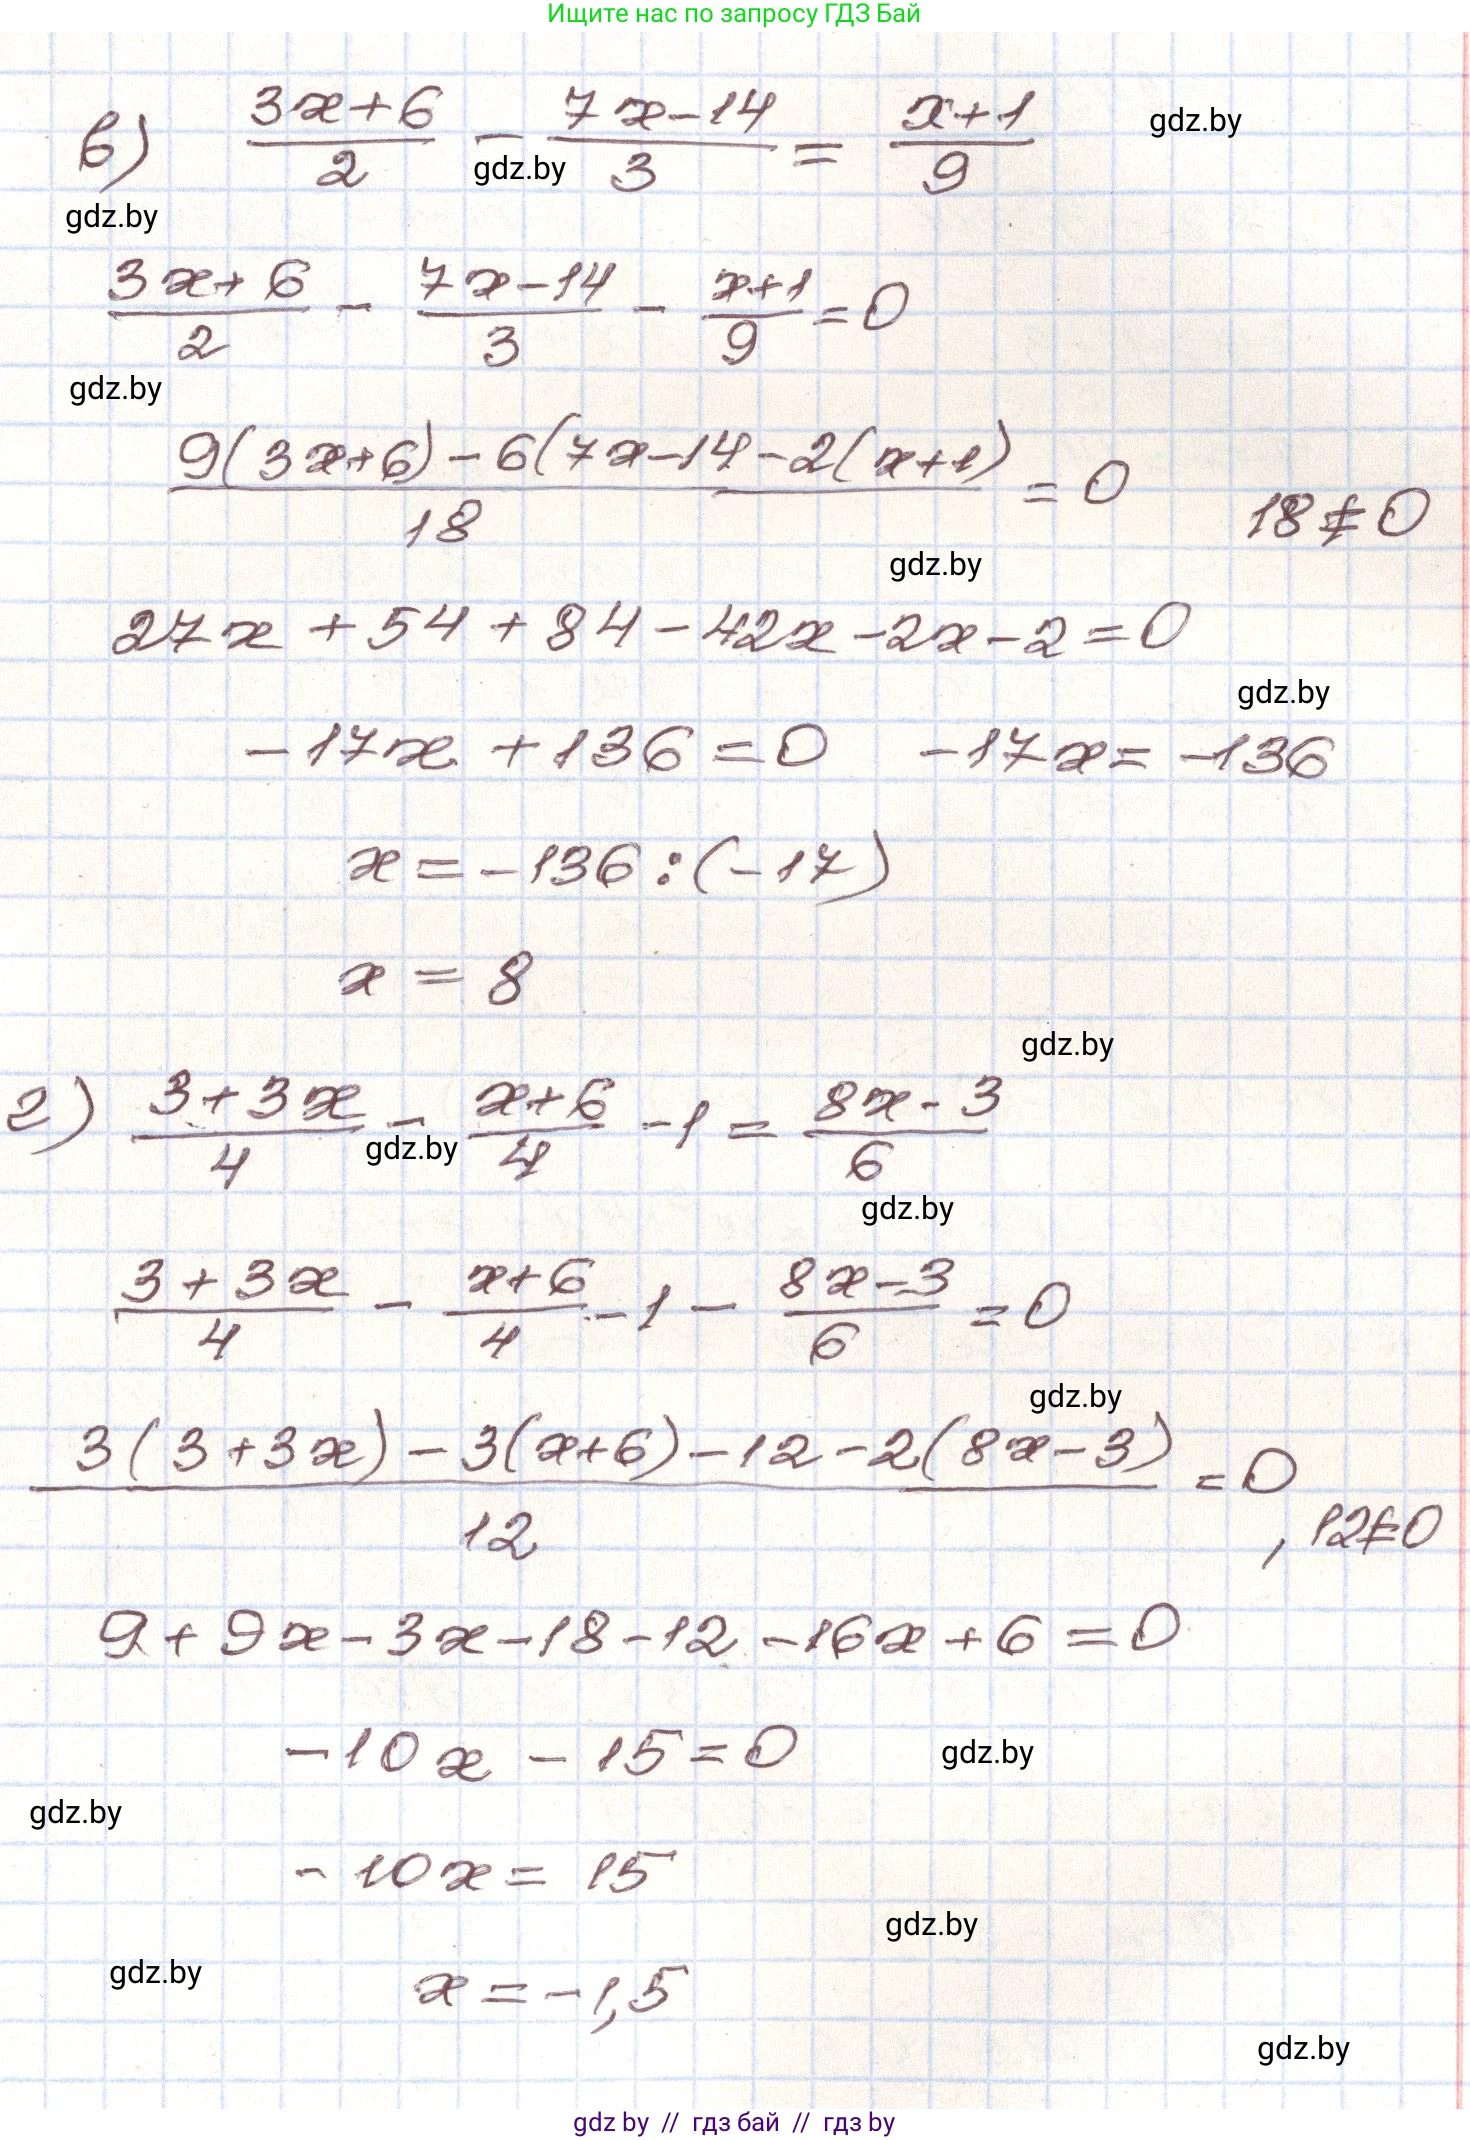 Ищите нас по запросу ГДЗ Бай
в) (3x+6)/2 - (7x-14)/3 = (x+1)/9
gdz.by
gdz.by
gdz.by
(3x+6)/2 - (7x-14)/3 - (x+1)/9 = 0
gdz.by
(9(3x+6)-6(7x-14-2(x+1))/18 = 0   18≠0
gdz.by
27x + 54 + 84 - 42x - 2x - 2 = 0
gdz.by
-17x + 136 = 0   -17x = -136
x = -136 : (-17)
x = 8
gdz.by
г) (3+3x)/4 - (x+6)/4 - 1 = (8x-3)/6
gdz.by
gdz.by
(3+3x)/4 - (x+6)/4 - 1 - (8x-3)/6 = 0
gdz.by
(3(3+3x)-3(x+6)-12-2(8x-3))/12 = 0, 12≠0
9+9x-3x-18-12-16x+6=0
-10x - 15 = 0
gdz.by
gdz.by
-10x = 15
gdz.by
gdz.by
x = -1,5
gdz.by
gdz by // гдз бай // гдз by